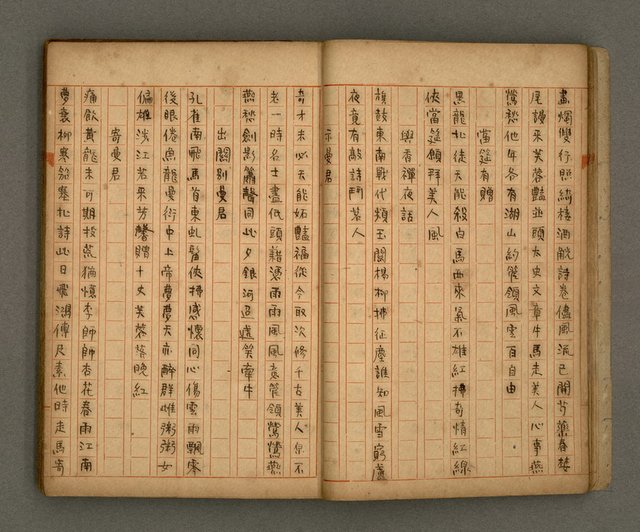 畫燭雙行照綺樓酒觥詩卷儘風流已開芍藥春婪
尾謾采芙蓉豔並頭太史文章牛馬走美人心事燕
鶯愁他年各有湖山約管領風雲百自由
當筵有贈
黑龍北徙天能殺白馬西來氣不雄紅拂奇情紅線
俠當筵傾拜美人風
與香禪夜話
旗鼓東南戰代頻玉關楊柳拂征塵誰知風雪窮廬
夜竟有敲詩鬥茗人
示曼君
奇才未必天能妬豔福從今敢次修千古美人原不
老一時名士盡低頭雞憑雨雨風風意管領鶯鶯燕
燕愁劍影簫聲同此夕銀河迢遞笑牽牛
出關別曼君
孔雀南飛馬首東虬髯俠拂感懷同心傷雲雨飄零
後眼倦魚龍曼衍中上帝夢夢天亦醉群雌粥粥女
偏雄涉江若采芳馨贈十丈芙蓉落晚紅
寄曼君
痛飲黃龍未可期投荒猶憶李師師杏花春雨江南
夢衰柳寒笳塞北詩此日飛鴻傳尺素他時走馬寄